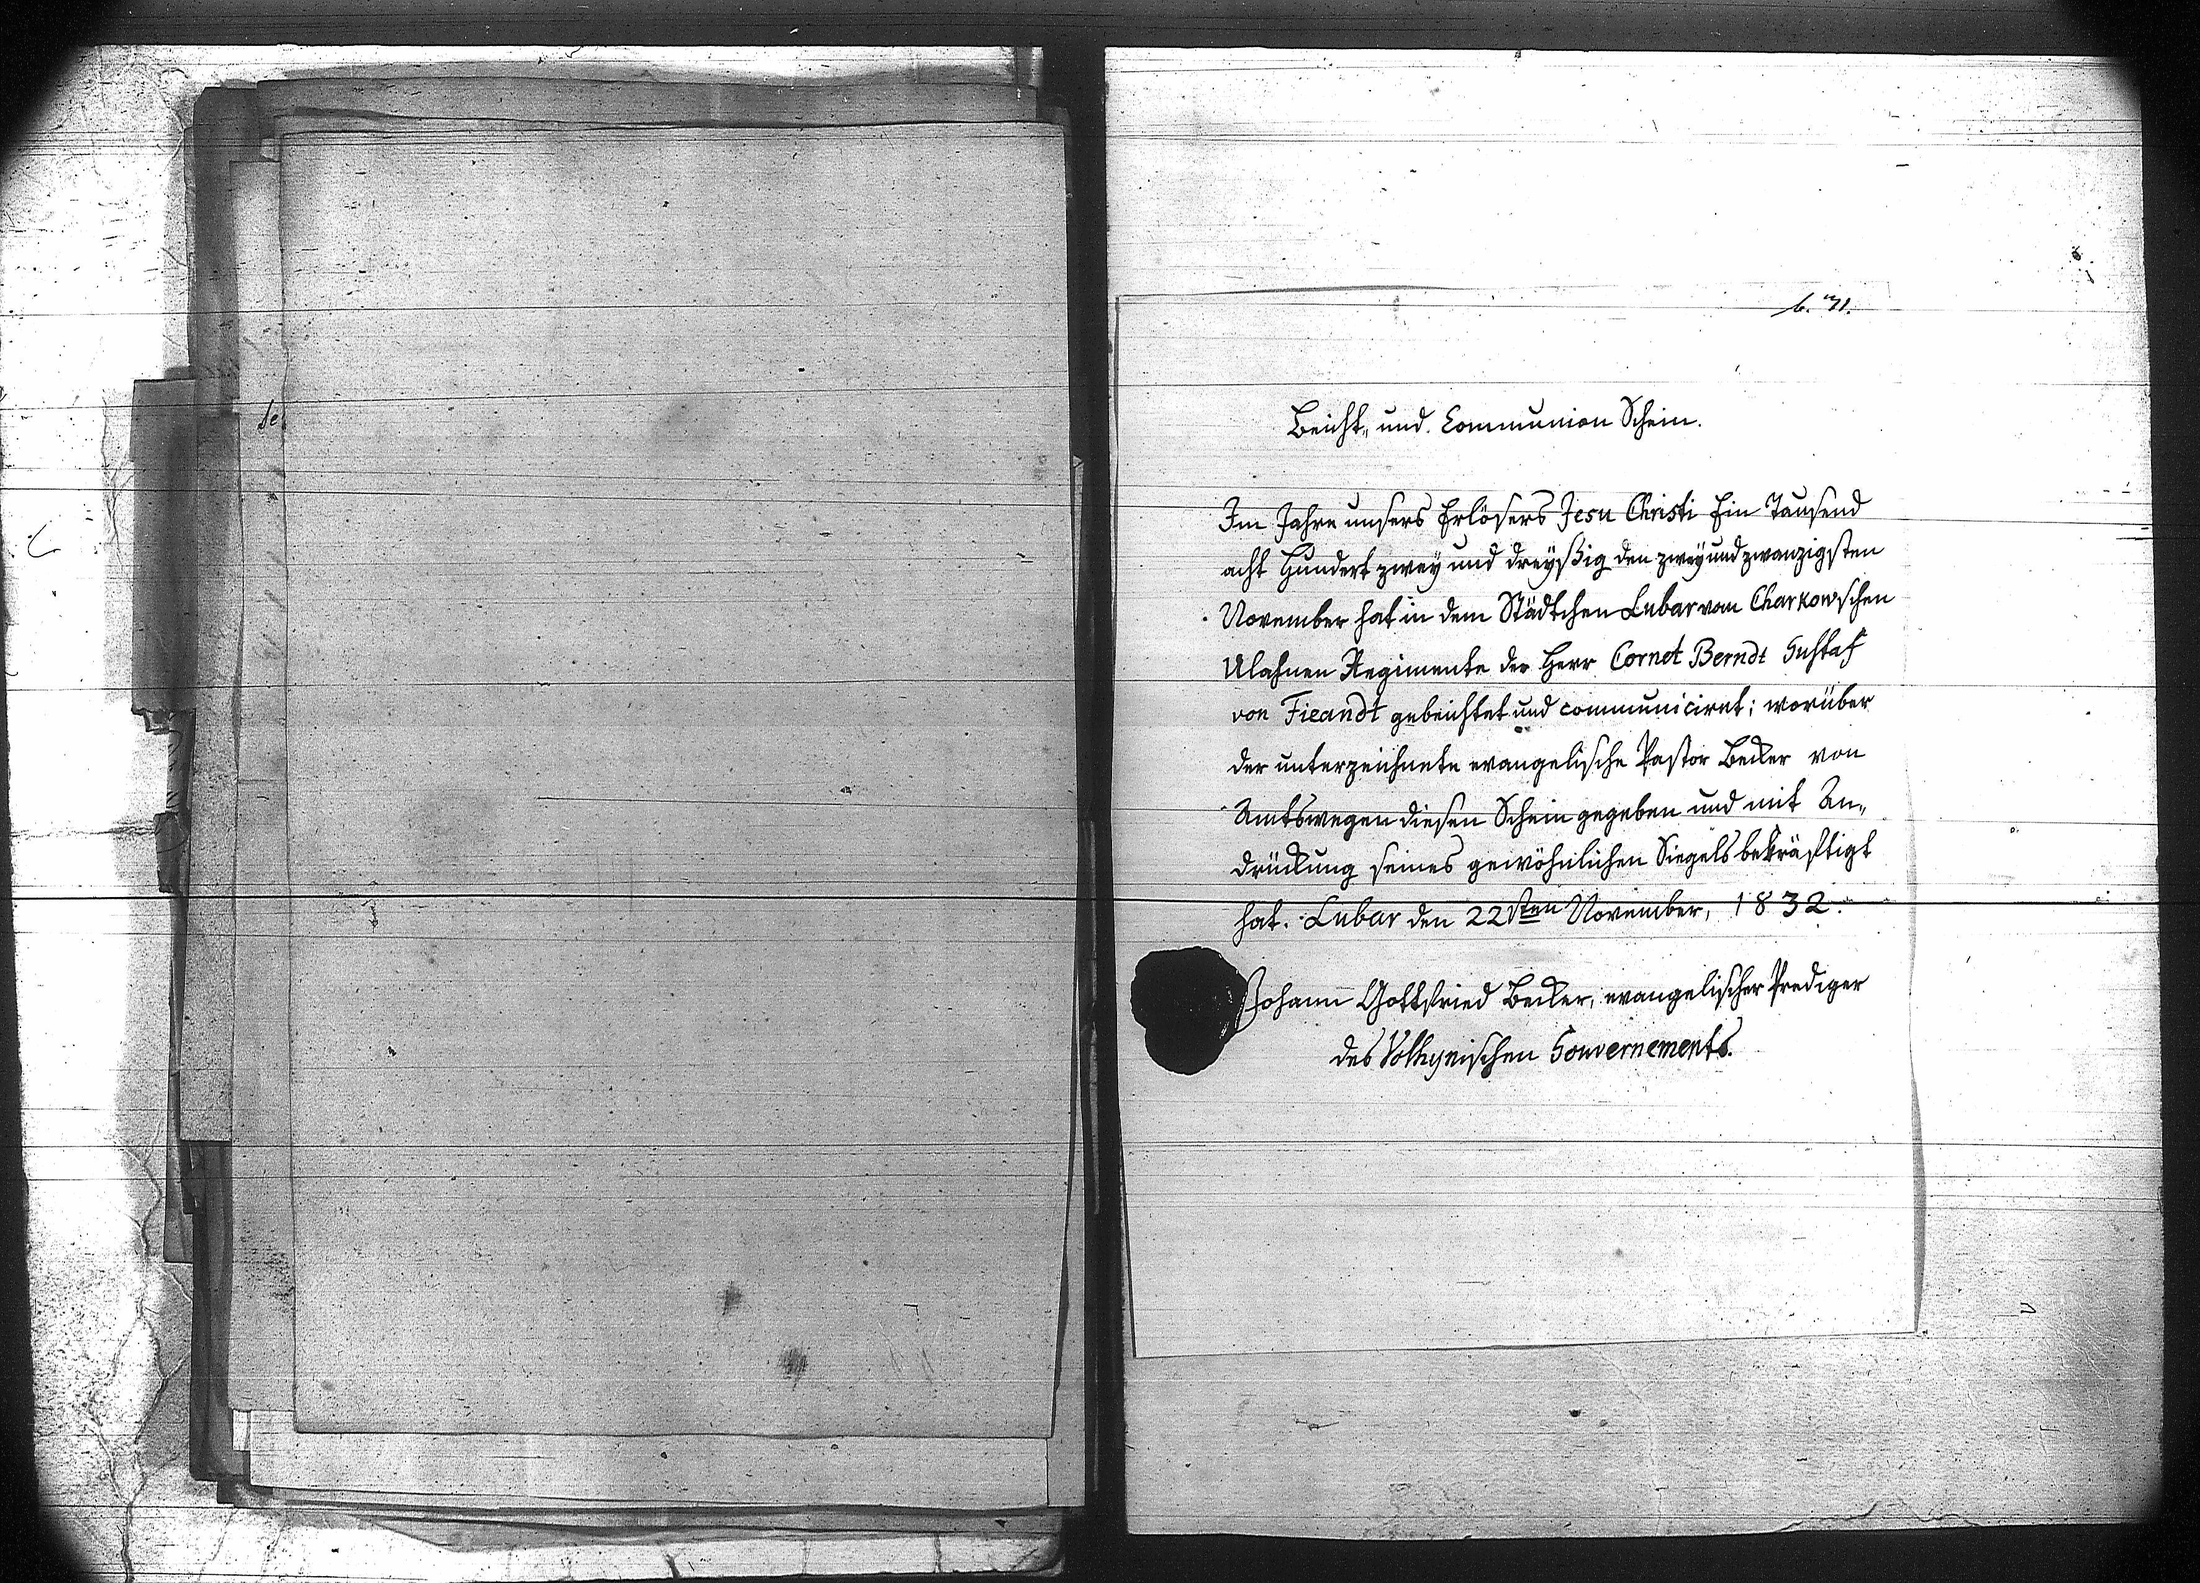 b. 71.
Beicht„ und Communion Schein.
Im Jahre unsers Erlösers Jesu Christi Ein Tausend
acht Hundert zwey und dreyßig den zwey und zwanzigsten
November hat in dem Städtchen Lubar vom Charkowschen
Ulahnen Regimente der Herr Cornet Berndt Gustaf
von Fieandt gebeichtet und communiciret; worüber
der unterzeichnete evangelische Pastor Becker von
Amtswegen diesen Schein gegeben und mit An„
drückung seines gewöhnlichen Siegels bekräftigt
hat. Lubar den 22sten November, 1832.
Johann Gottfried Becker, evangelischer Prediger
des Volhynischen Gouvernements.